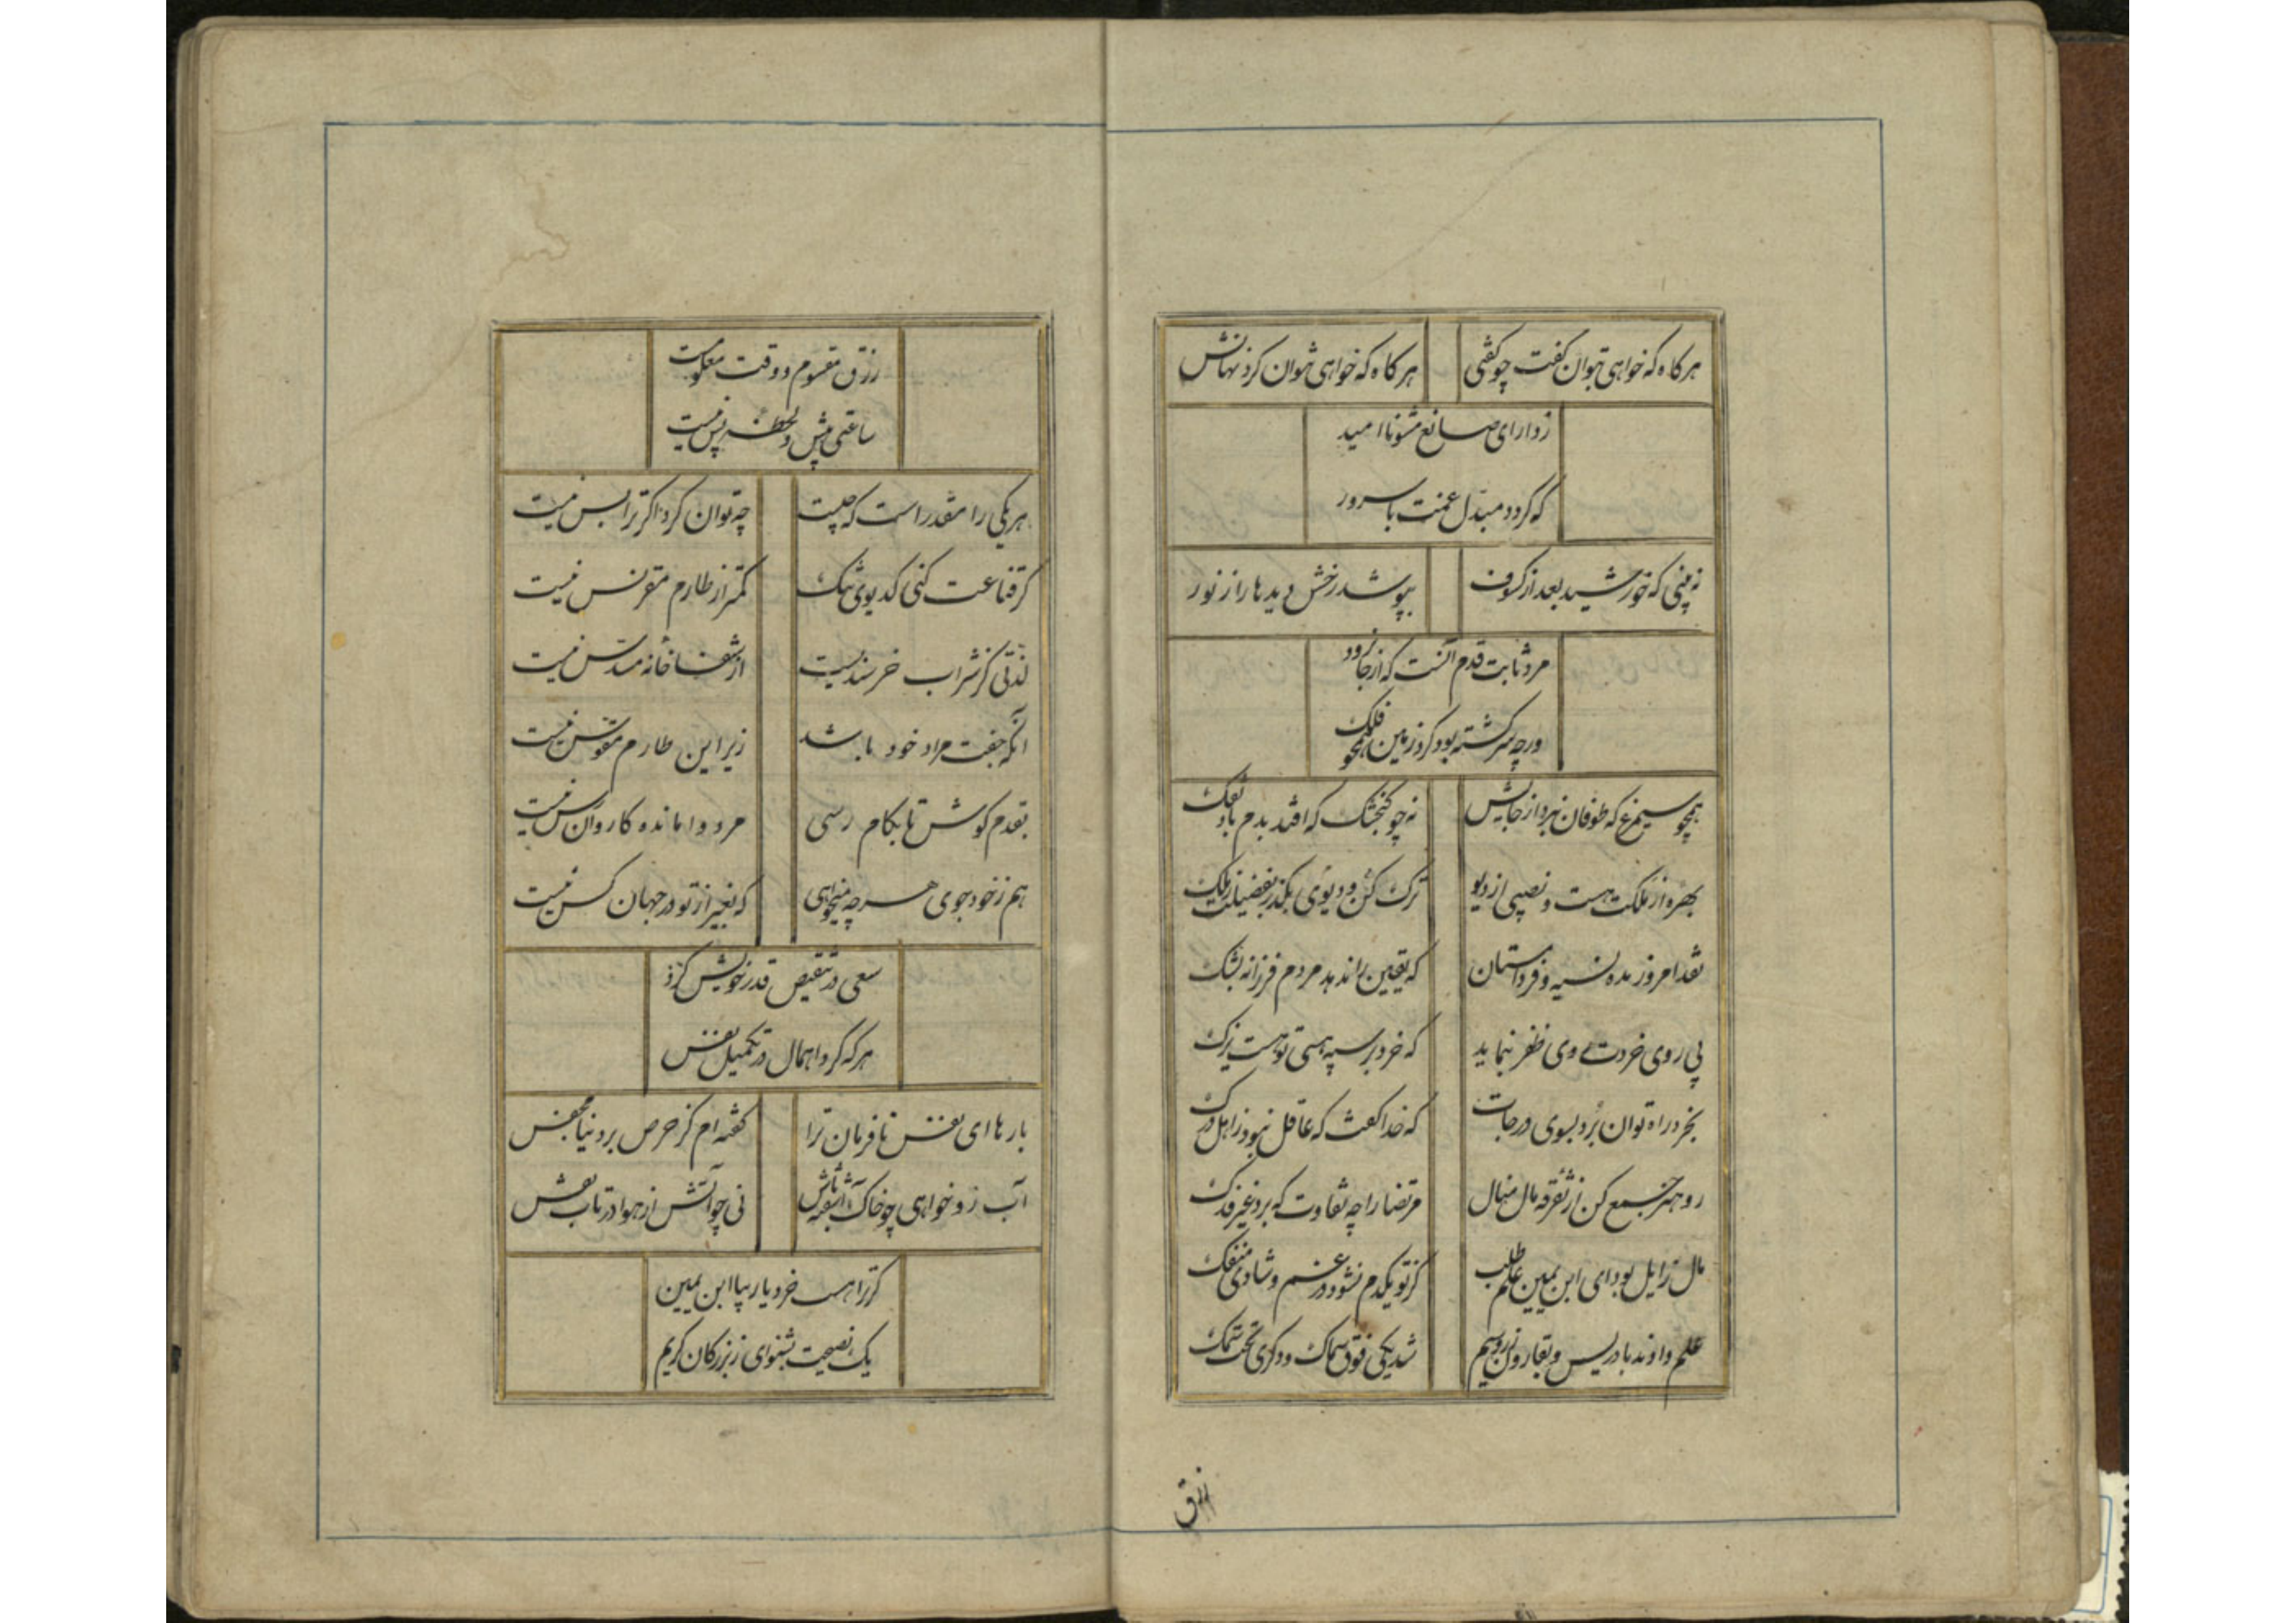 هرگاه که خواهی بتوان گفت چو گفتی
هرگاه که خواهی نتوان کرد نهانش
ز دارای صانع مشو ناامید
که گردد مبدل غمت با سرور
نه بینی که خورشید بعد از کسوف
بپوشد رخش دیدها را ز نور
مرد ثابت قدم آنست که از جا نرود
ورچه سرگشته بود گرد زمین همچو فلک
همچو سیمرغ که طوفان نبرد از جایش
نه چو گنجشک که افتد بدم باد تفک
بهره از ملکت هست و نصیبی از دیو
ترک کن دیوی و بگذر بفضیلت ز ملک
نقد امروز مده نسیه فردا مستان
که یقین را ندهد مردم فرزانه بشک
پی روی خردت روی ظفر ننماید
که خرد بر سپه هستی تو هست یزک
بخرد راه توان برد بسوی درجات
که خدا گفت که عاقل نبود ز اهل درک
رو هنر جمع کن از تفرقه مال منال
مرتضا را چه تفاوت که برد غیر فدک
مال زایل بود ای ابن یمین علم طلب
کز تو یکدم نشود در غم و شادی منفک
علم دادند بادریس و بقارون زر و سیم
شد یکی فوق سماک و دگری تحت سمک
رزق
رزق مقسوم و وقت معلومست
ساعتی پیش و لحظه پس نیست
هر یکی را مقدر است که چیست
چه توان کرد اگر ترا بس نیست
گر قناعت کنی کدیوی تنک
کمتر از طارم مقرنس نیست
لذتی کز شراب خرسندیست
از شفاخانه مسدس نیست
آنکه جفت مراد خود باشد
زیر این طارم مقوس نیست
بقدم کوش تا بکام رسی
مرد وامانده کاروان رس نیست
هم ز خود جوی هر چه میخواهی
که بغیر از تو در جهان کس نیست
سعی در تنقیص قدر خویش کرد
هر که کرد اهمال در تکمیل نفس
بارها ای نفس نافرمان ترا
گفته ام کز حرص بر دنیا مچفس
آب رو خواهی چو خاک آهسته باش
نی چو آتش از هوا در تاب تفس
گر ترا هست خرد یار بیا ابن یمین
یک نصیحت بشنو ای ز بزرگان کریم